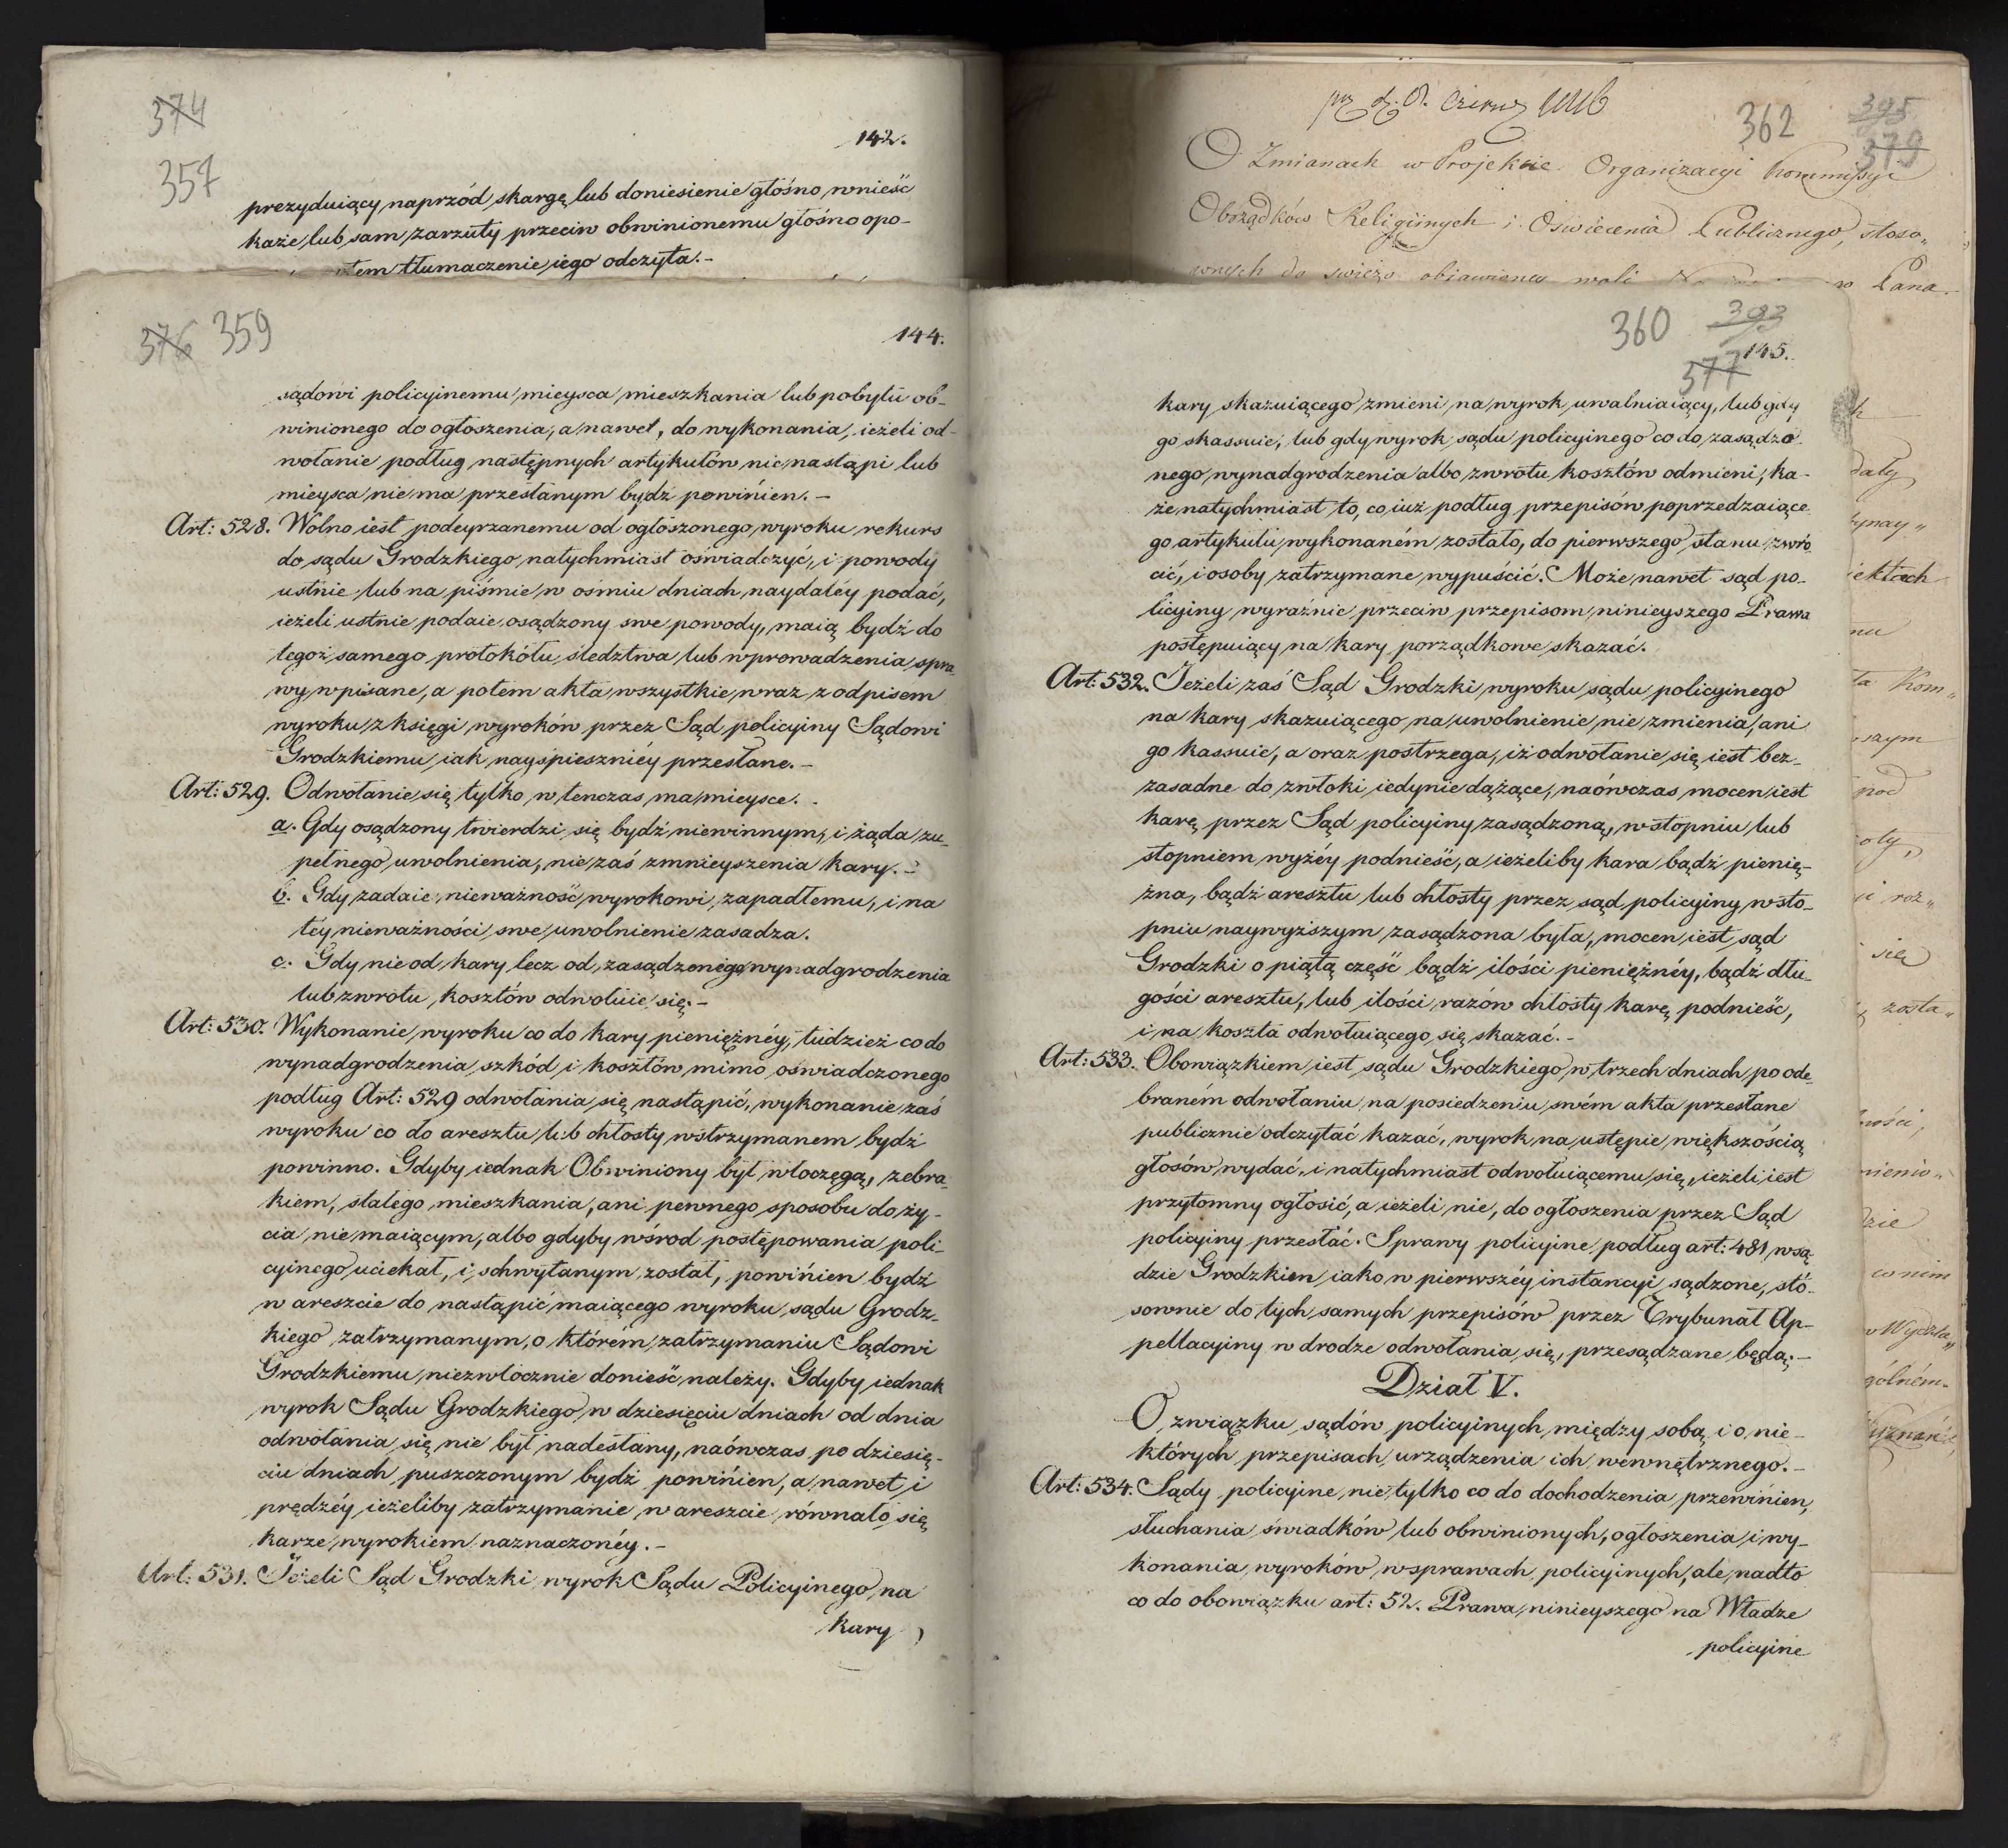 374
357
142.
prezyduiący naprzód skargę lub doniesienie głośno wnieść
każe, lub sam zarzuty przeciw obwinionemu głośno opo-
tem tłumaczenie iego odczyta.-
362
395
379
O Zmianach w Projekcie Organizacyi Kommissyi
Obrządków Religiinych i Oświecenia Publicznego, stoso„
wnych do świeżo obiawioney woli
w Pana
376 359
144.
sądowi policyinemu mieysca mieszkania lub pobytu ob-
winionego do ogłoszenia, a nawet, do wykonania, ieżeli od-
wołanie podług następnych artykułów nie nastąpi lub
mieysca nie ma przesłanym bydź powinien.-
Art: 528. Wolno iest podeyrzanemu od ogłoszonego wyroku rekurs
do sądu Grodzkiego natychmiast oświadczyć, i powody
ustnie lub na piśmie w ośmiu dniach naydaléy podać,
ieżeli ustnie podaie osądzony swe powody, maią bydź do
tegoż samego protokółu śledztwa lub wprowadzenia spra-
wy wpisane, a potem akta wszystkie wraz z odpisem
wyroku z księgi wyroków przez Sąd policyiny Sądowi
Grodzkiemu iak nayśpieszniéy przesłane.-
Art: 529. Odwołanie się tylko w tenczas ma mieysce.
a. Gdy osądzony twierdzi się bydź niewinnym, i żąda zu-
pełnego uwolnienia, nie zaś zmnieyszenia kary.-
b. Gdy zadaie nieważność wyrokowi zapadłemu, i na
téy nieważności swe uwolnienie zasadza.
c. Gdy nie od kary lecz od zasądzonego wynadgrodzenia
lub zwrotu kosztów odwołuie się.-
Art: 530. Wykonanie wyroku co do kary pieniężnéy, tudzież co do
wynadgrodzenia szkód i kosztów mimo oświadczonego
podług Art: 529 odwołania się nastąpić, wykonanie zaś
wyroku co do aresztu lub chłosty wstrzymanem bydź
powinno. Gdyby iednak Obwiniony był włoczęgą, żebra-
kiem, stałego mieszkania, ani pewnego sposobu do ży-
cia nie maiącym, albo gdyby wśrod postępowania poli-
cyinego uciekał, i schwytanym został, powinien bydź
w areszcie do nastąpić maiącego wyroku sądu Grodz-
kiego zatrzymanym, o którém zatrzymaniu Sądowi
Grodzkiemu niezwłocznie donieść należy. Gdyby iednak
wyrok Sądu Grodzkiego w dziesięciu dniach od dnia
odwołania się nie był nadesłany, naówczas po dziesię-
ciu dniach puszczonym bydź powinien, a nawet i
prędzéy ieżeliby zatrzymanie w areszcie równało się
karze wyrokiem naznaczonéy.-
Art: 531. Jeżeli Sąd Grodzki wyrok Sądu Policyinego na
kary
360 393
377
145.
kary skazuiącego zmieni na wyrok uwalniaiący, lub gdy
go skassuie, lub gdy wyrok sądu policyinego co do zasądzo-
nego wynadgrodzenia albo zwrotu kosztów odmieni, ka-
że natychmiast to, co iuż podług przepisów poprzedzaiące-
go artykułu wykonaném zostało, do pierwszego stanu zwró-
cić, i osoby zatrzymane wypuścić. Może nawet sąd po-
licyiny wyraźnie przeciw przepisom ninieyszego Prawa
postępuiący na kary porządkowe skazać.
Art: 532. Jeżeli zaś Sąd Grodzki wyroku sądu policyinego
na kary skazuiącego na uwolnienie nie zmienia, ani
go kassuie, a oraz postrzega, iż odwołanie się iest bez-
zasadne do zwłoki iedynie dążące, naówczas mocen iest
karę przez Sąd policyiny zasądzoną, w stopniu lub
stopniem wyżéy podnieść, a ieżeliby kara bądź pienię-
żna, bądź aresztu lub chłosty przez sąd policyiny w sto-
pniu naywyższym zasądzona była, mocen iest sąd
Grodzki o piątą część bądź ilości pieniężnéy, bądź dłu-
gości aresztu, lub ilości razów chłosty karę podnieść,
i na koszta odwołuiącego się skazać.-
Art: 533. Obowiązkiem iest sądu Grodzkiego w trzech dniach po ode-
braném odwołaniu na posiedzeniu swém akta przesłane
publicznie odczytać kazać, wyrok na ustępie większością
głosów wydać, i natychmiast odwołuiącemu się, ieżeli iest
przytomny ogłosić, a ieżeli nie, do ogłoszenia przez Sąd
policyiny przesłać. Sprawy policyine podług art: 481 w są-
dzie Grodzkim iako w pierwszéy instancyi sądzone, stó-
sownie do tych samych przepisów przez Trybunał Ap-
pellacyiny w drodze odwołania się, przesądzane będą.-
Dział V.
O związku sądów policyinych między sobą i o nie-
których przepisach urządzenia ich wewnętrznego.-
Art: 534. Sądy policyine nie tylko co do dochodzenia przewinien,
słuchania świadków lub obwinionych, ogłoszenia i wy-
konania wyroków w sprawach policyinych, ale nadto
co do obowiązku art: 52. Prawa ninieyszego na Władze
policyine